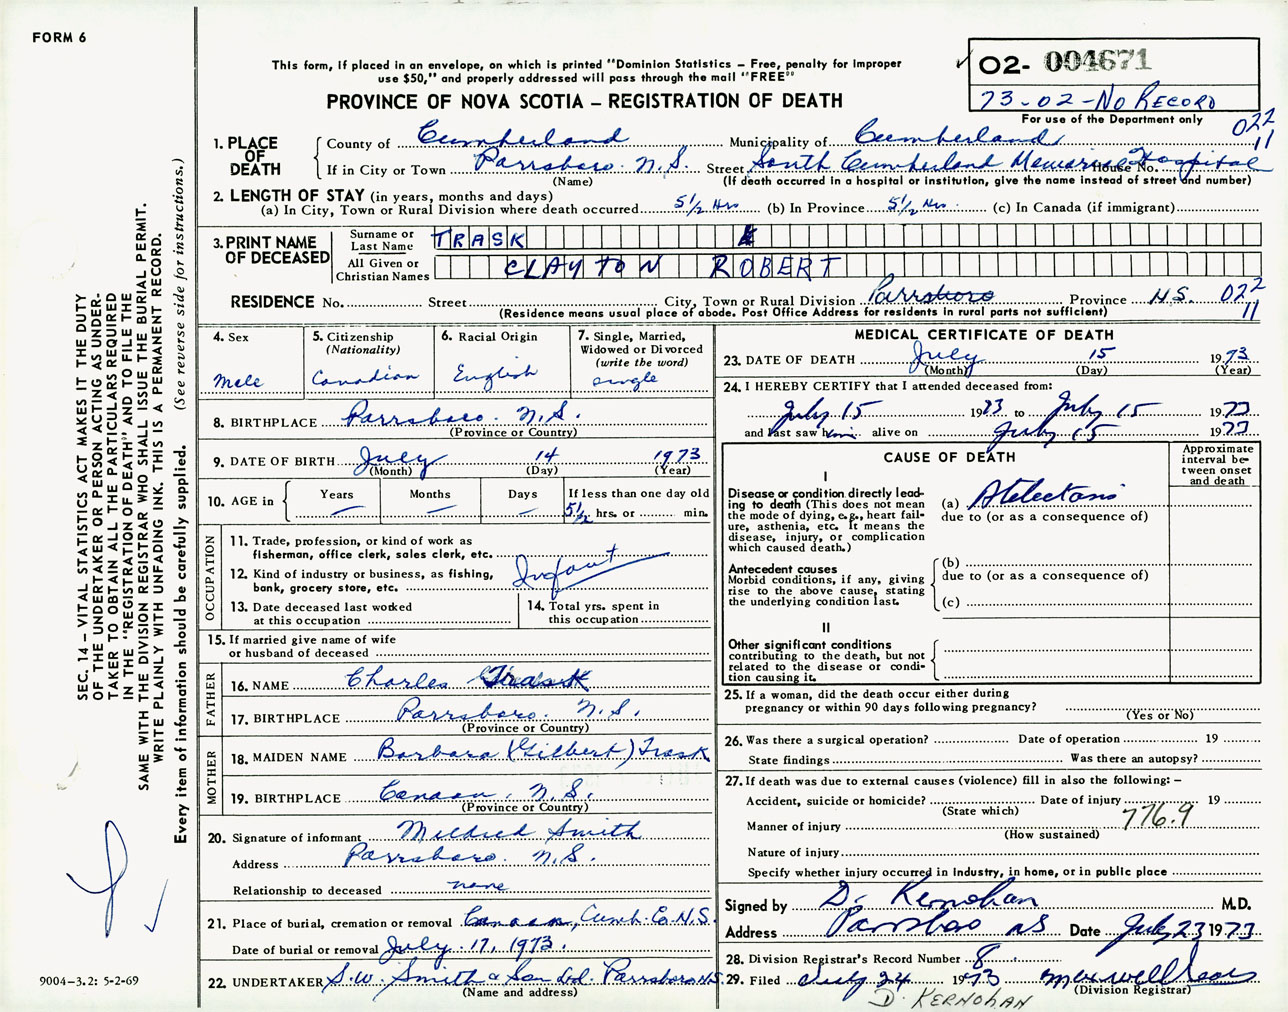 FORM 6
This form, if placed in an envelope, on which is printed "Dominion Statistics – Free, penalty for improper
use $50," and properly addressed will pass through the mail "FREE"
PROVINCE OF NOVA SCOTIA – REGISTRATION OF DEATH
02- 004671
73-02-No Record
For use of the Department only
022
11
1. PLACE OF DEATH
County of Cumberland Municipality of Cumberland
If in City or Town Parrsboro. N.S. Street South Cumberland Memorial Hospital House No.
(Name) (If death occurred in a hospital or institution, give the name instead of street and number)
2. LENGTH OF STAY (in years, months and days)
(a) In City, Town or Rural Division where death occurred 5½ Hrs (b) In Province 5½ Hrs. (c) In Canada (if immigrant)
3. PRINT NAME OF DECEASED
Surname or Last Name TRASK
All Given or Christian Names CLAYTON ROBERT
RESIDENCE No. Street City, Town or Rural Division Parrsboro Province N.S. 022
11
(Residence means usual place of abode. Post Office Address for residents in rural parts not sufficient)
4. Sex
Male
5. Citizenship
(Nationality)
Canadian
6. Racial Origin
English
7. Single, Married,
Widowed or Divorced
(write the word)
single
8. BIRTHPLACE Parrsboro. N.S.
(Province or Country)
9. DATE OF BIRTH July 14 1973
(Month) (Day) (Year)
10. AGE in
Years –
Months –
Days –
If less than one day old
5½ hrs. or min.
OCCUPATION
11. Trade, profession, or kind of work as
fisherman, office clerk, sales clerk, etc.
12. Kind of industry or business, as fishing,
bank, grocery store, etc.
Infant
13. Date deceased last worked
at this occupation
14. Total yrs. spent in
this occupation
15. If married give name of wife
or husband of deceased
FATHER
16. NAME Charles Trask
17. BIRTHPLACE Parrsboro. N.S.
(Province or Country)
MOTHER
18. MAIDEN NAME Barbara (Gilbert) Trask
19. BIRTHPLACE Canaan. N.S.
(Province or Country)
20. Signature of informant Mildred Smith
Address Parrsboro. N.S.
Relationship to deceased none
21. Place of burial, cremation or removal Canaan, Cumb. Co. N.S.
Date of burial or removal July 17, 1973.
22. UNDERTAKER S.W. Smith & Son Ltd. Parrsboro N.S.
(Name and address)
MEDICAL CERTIFICATE OF DEATH
23. DATE OF DEATH July 15 1973
(Month) (Day) (Year)
24. I HEREBY CERTIFY that I attended deceased from:
July 15 1973 to July 15 1973
and last saw him alive on July 15 1973
CAUSE OF DEATH
Approximate
interval be-
tween onset
and death
I
Disease or condition directly lead-
ing to death (This does not
mean the mode of dying, e.g., heart fail-
ure, asthenia, etc. It means the
disease, injury, or complication
which caused death.)
(a) Atelectasis
due to (or as a consequence of)
Antecedent causes
Morbid conditions, if any, giving
rise to the above cause, stating
the underlying condition last.
(b)
due to (or as a consequence of)
(c)
II
Other significant conditions
contributing to the death, but not
related to the disease or condi-
tion causing it.
25. If a woman, did the death occur either during
pregnancy or within 90 days following pregnancy?
(Yes or No)
26. Was there a surgical operation? Date of operation 19
State findings Was there an autopsy?
27. If death was due to external causes (violence) fill in also the following: –
Accident, suicide or homicide? Date of injury 19
(State which)
776.9
Manner of injury
(How sustained)
Nature of injury
Specify whether injury occurred in Industry, in home, or in public place
Signed by D. Kernohan M.D.
Address Parrsboro NS Date July 23 1973
28. Division Registrar's Record Number 8
29. Filed July 24 1973 Maxwell
(Division Registrar)
D. KERNOHAN
SEC. 14 – VITAL STATISTICS ACT MAKES IT THE DUTY
OF THE UNDERTAKER OR PERSON ACTING AS UNDER-
TAKER TO OBTAIN ALL THE PARTICULARS REQUIRED
IN THE "REGISTRATION OF DEATH" AND TO FILE THE
SAME WITH THE DIVISION REGISTRAR WHO SHALL ISSUE THE BURIAL PERMIT.
WRITE PLAINLY WITH UNFADING INK. THIS IS A PERMANENT RECORD.
Every item of information should be carefully supplied. (See reverse side for instructions.)
9004-3.2: 5-2-69